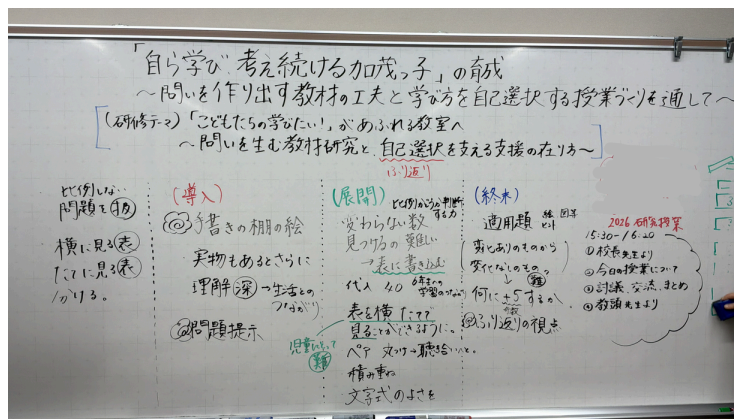 「自ら学び 考え続ける加茂っ子」の育成
～問いを作り出す教材の工夫と学び方を自己選択する授業づくりを通して～
(研修テーマ)「こどもたちの学びたい!」があふれる教室へ
～問いを生む教材研究と、自己選択を支える支援の在り方～
ふり返り
比例しない
問題を扱
横に見る表
たてに見る表
かける。
(導入)
手書きの棚の絵
実物もあるとさらに
理解深→生活との
つながり
問題提示
(展開)
比例かどうか判断
する力
変わらない数
見つけるの難しい
→表に書き込む
代入 40
6年生の
学習のつながり
表を横 たてで
見ることができるように。
児童にとって
難
ペア 丸つけ→聴き合いと。
積み重ね
文字式のよさを
(終末)
適用題
絵 図等
ヒント
変化ありのものから
変化なしのもの。
難
何に+5するか
ふり返りの視点
2026 研究授業
15:30-16:20
①校長先生より
②今日の授業について
③討議、交流、まとめ
④教頭先生より